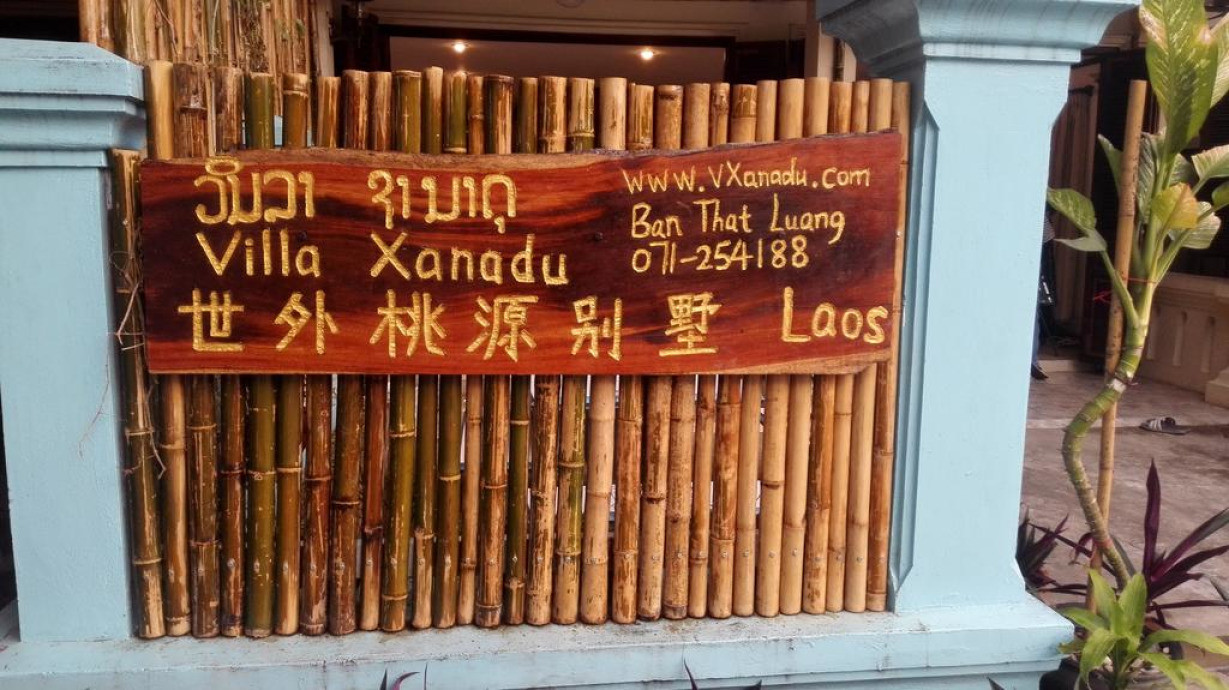 ວິນລາ ຊານາດຸ
Villa Xanadu
世外桃源别墅 Laos
www.VXanadu.com
Ban That Luang
071-254188